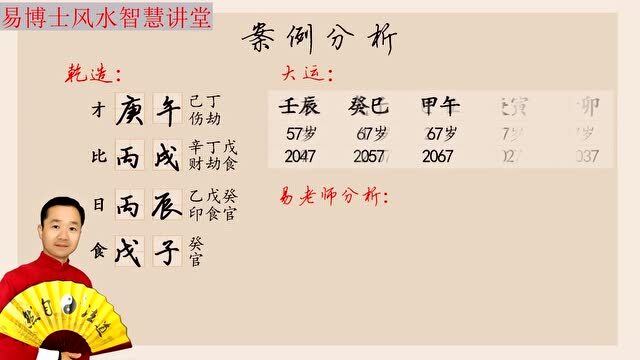 易博士风水智慧讲堂
案例分析
乾造：
才 庚 午 己丁
伤劫
比 丙 戌 辛丁戊
财劫食
日 丙 辰 乙戊癸
印食官
食 戊 子 癸
官
大运：
壬辰 癸巳 甲午 寅 卯
57岁 67岁 67岁 7岁 岁
2047 2057 2067 027 037
易老师分析：
然自法道